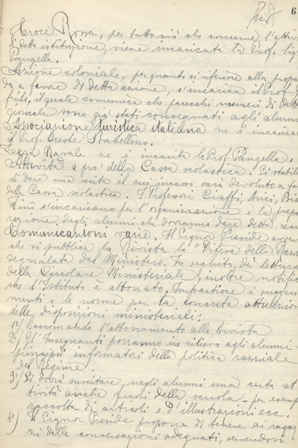 6
Croce Rossa, per tutto ciò che concerne l'attivi
detta istituzione, viene incaricata la Prof. Sig
Pangella.
Azione coloniale, per quanto si riferisce alla propa
da a favore di detta azione, s'incarica il Prof.
il quale comunica che parecchi numeri di
giornale sono già stati consegnati agli alunni
Associazione turistica italiana ne è incarica
il Prof. Oreste Stabellino.
Lega Navale ne è incarita la Prof. Pangella.
Attività a pro' della Cassa scolastica. Si stabili
di dare una recita il cui incasso sarà devoluto a fa
della Cassa scolastica. I Professori Craffi,
s'incaricano per l'organizzazione e la prepa
razione degli alunni che dovranno dare detta
Comunicazioni varie. Il Signor Preside avver
che si pubblica la Rivista la "Difesa della Razza
segnalata dal Ministero. In seguito dà lettura
della Circolare Ministeriale, inoltre notifica
che l'Istituto è abbonato. Impartisce i sugeri
menti e le norme per la concreta attuazione
delle disposizioni ministeriali:
1) Raccomanda l'abbonamento alla Rivista
2) Gl'Insegnanti porranno in rilievo agli alunni
principii informatori della politica razziale
del Regime
3) Si dovrà suscitare, negli alunni una certa at
tività anche fuori della scuola per esemp
raccolta di articoli e d'illustrazioni ecc.
4) Il Signor Preside propone di tenere ai ragaz
zi delle conversazioni adeguati, servendosi